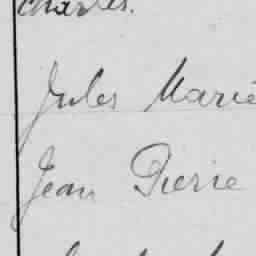 Charles.
Jules Marie
Jean Pierre